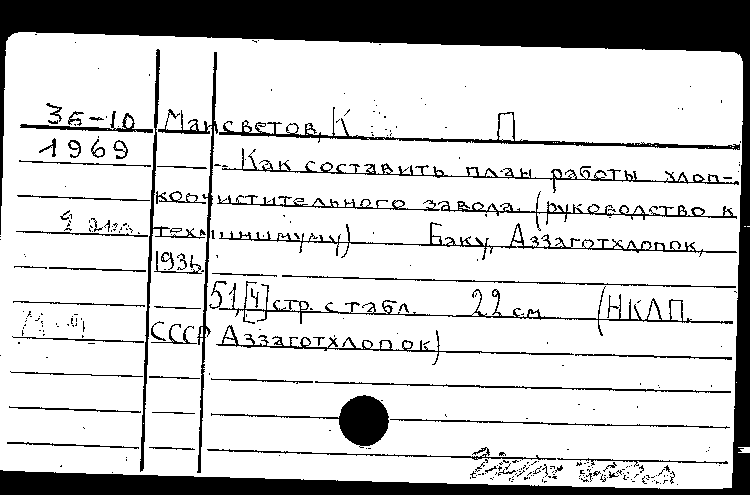 36-10 Мансветов, К П
1969 Как составить план работы хлоп-
коочистительного завода. (руководство к
2 экз. техминимуму) Баку, Аззаготхлопок,
1936
51,[4] стр. с табл. 22 см (НКЛП.
СССР Аззаготхлопок)